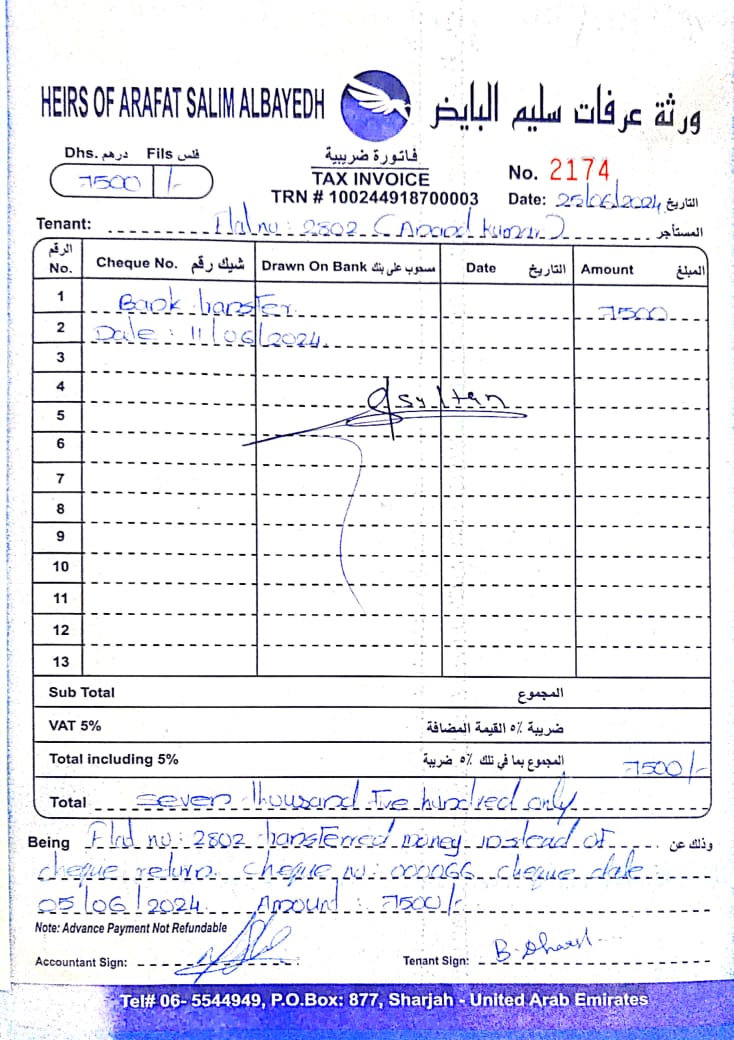 HEIRS OF ARAFAT SALIM ALBAYEDH ورثة عرفات سليم البايض
Dhs. درهم Fils فلس
7500 /-
فاتورة ضريبية
TAX INVOICE
TRN # 100244918700003
No. 2174
Date: 25/06/2024 التاريخ
Tenant: Flat no: 2802 (Anand Kumar) المستأجر
الرقم No. Cheque No. شيك رقم Drawn On Bank مسحوب على بنك Date التاريخ Amount المبلغ
1 Bank transfer 7500
2 Date: 11/06/2024
3
4
5
6
7
8
9
10
11
12
13
Sub Total المجموع
VAT 5% ضريبة ٥٪ القيمة المضافة
Total including 5% المجموع بما في تلك ٥٪ ضريبة 7500/-
Total seven thousand five hundred only
Being Flat no: 2802 transferred money instead of وذلك عن
cheque return. cheque no: 000066 cheque date:
05/06/2024 Amount: 7500/-
Note: Advance Payment Not Refundable
Accountant Sign: Tenant Sign:
Tel# 06- 5544949, P.O.Box: 877, Sharjah - United Arab Emirates